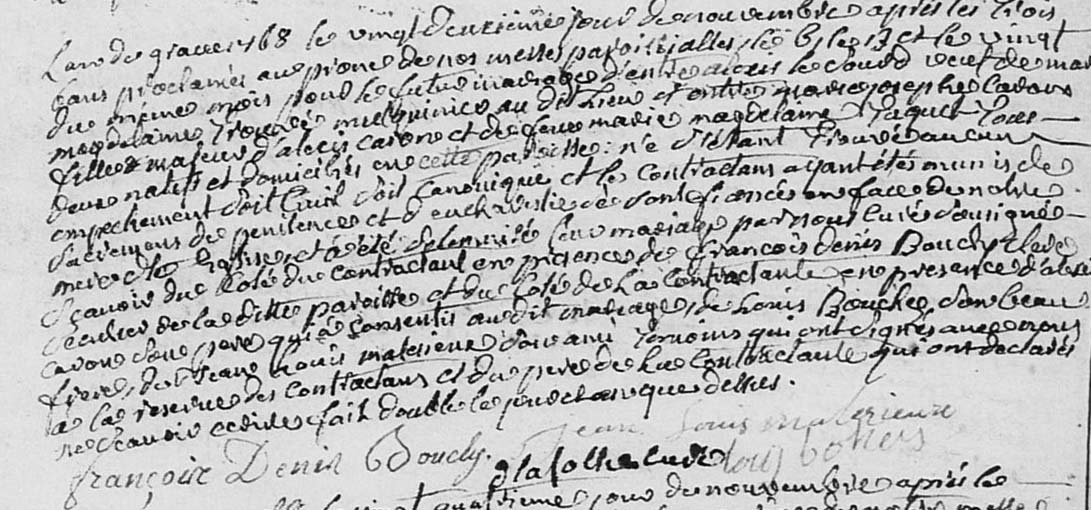 L'an de grace 1768 le vingt deuxieme jour de novembre apres les trois
bans proclamés au prone de nos messes paroissialles, le 6, le 13 et le vingt
du même mois pour le futur mariage d'entre alexis le sourd veuf de marie
magdelaine mulquinier au dit lieu et entre marie josephe Caron
fille majeur d'alexis caron et de feue marie magdelaine Paquet tous
deux natifs et domiciliés en cette paroisse : ne s'étant trouvé aucun
empechement soit Civil soit Canonique et les contractans ayant étés munis de
sacremens de penitence et d'eucharistie se sont fiancés en face de notre
mere ste Eglise, et a été solemnisé leur mariage par nous curé soussigné
sçavoir du Coté du contractant en presence de françois denis Boucly clerc
seculier de la ditte paroisse et du Coté de La Contractante en presence d'alexis
caron son pere qui a consenti au dit mariage, de Louis Bouche son beau
frere, de Jean Louis materieux son ami temoins qui ont signés avec nous
a la reserve des contractans et du pere de la Contractante qui ont declarés
ne sçavoir ecrire fait double les jour et an que dessus.
françoix Denis Boucly. Jean Louis materieux
curé Louis
quatrieme jour de novembre après les